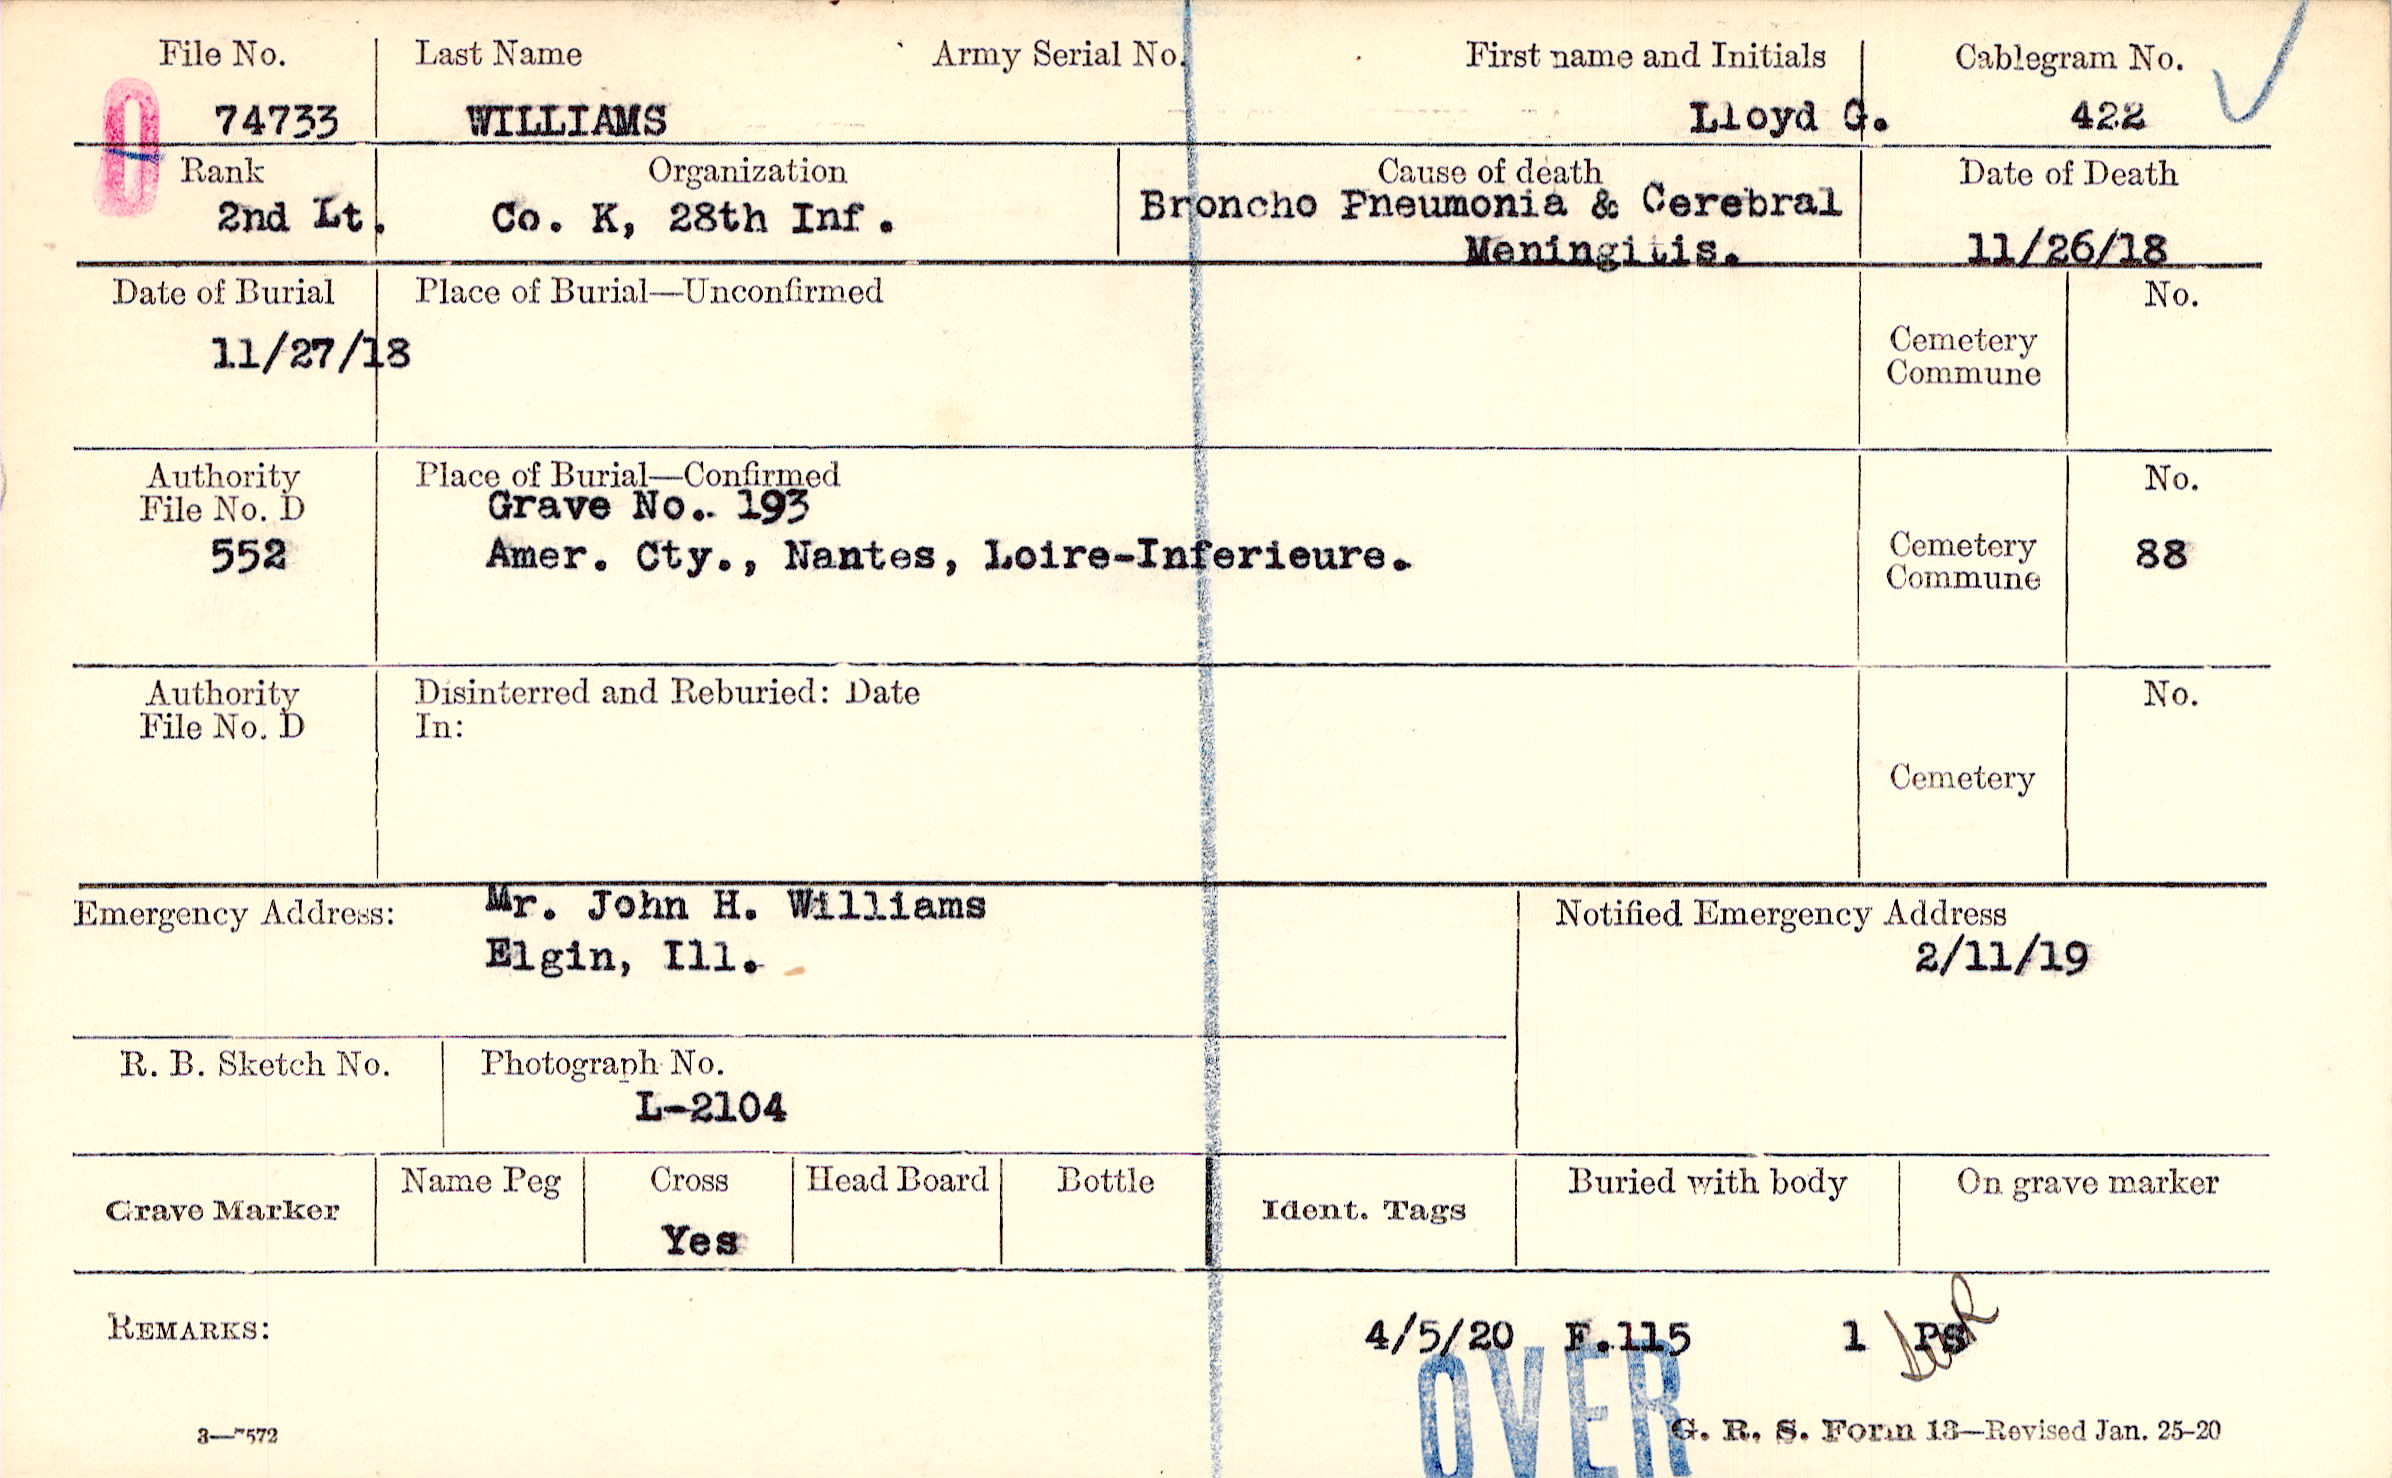 File No. Last Name Army Serial No. First name and Initials Cablegram No.
O 74733 WILLIAMS Lloyd G. 422
Rank Organization Cause of death Date of Death
2nd Lt. Co. K, 28th Inf. Broncho Pneumonia & Cerebral
Meningitis. 11/26/18
Date of Burial Place of Burial—Unconfirmed No.
11/27/18 Cemetery
Commune
Authority Place of Burial—Confirmed No.
File No. D Grave No. 193
552 Amer. Cty., Nantes, Loire-Inferieure. Cemetery 88
Commune
Authority Disinterred and Reburied: Date No.
File No. D In:
Cemetery
Emergency Address: Mr. John H. Williams Notified Emergency Address
Elgin, Ill. 2/11/19
R. B. Sketch No. Photograph No.
L-2104
Grave Marker Name Peg Cross Head Board Bottle Ident. Tags Buried with body On grave marker
Yes
REMARKS: 4/5/20 F.115 1 PS
OVER
3—7572 G. R. S. Form 13—Revised Jan. 25-20